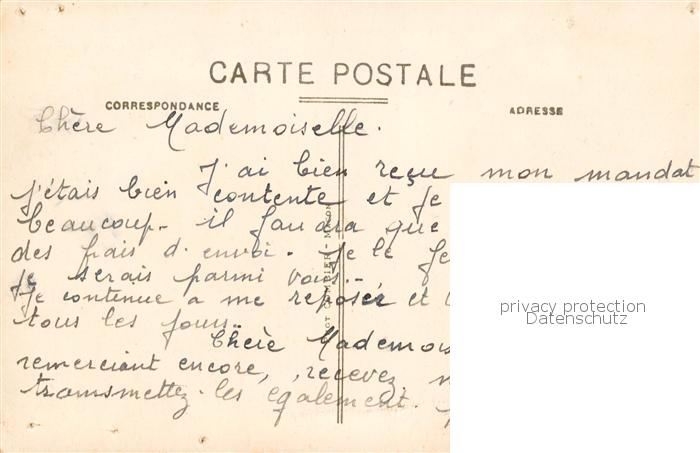 CARTE POSTALE
CORRESPONDANCE
ADRESSE
Chère Mademoiselle.
J'ai bien reçu mon mandat
j'étais bien contente et je
beaucoup. il faudra que
des frais d'envoi. Je le fe
je serais parmi vous.-
Je continue a me reposer et
tous les jours.
Chère Mademois
remerciant encore, recevez
transmettez-les egalement.
privacy protection
Datenschutz